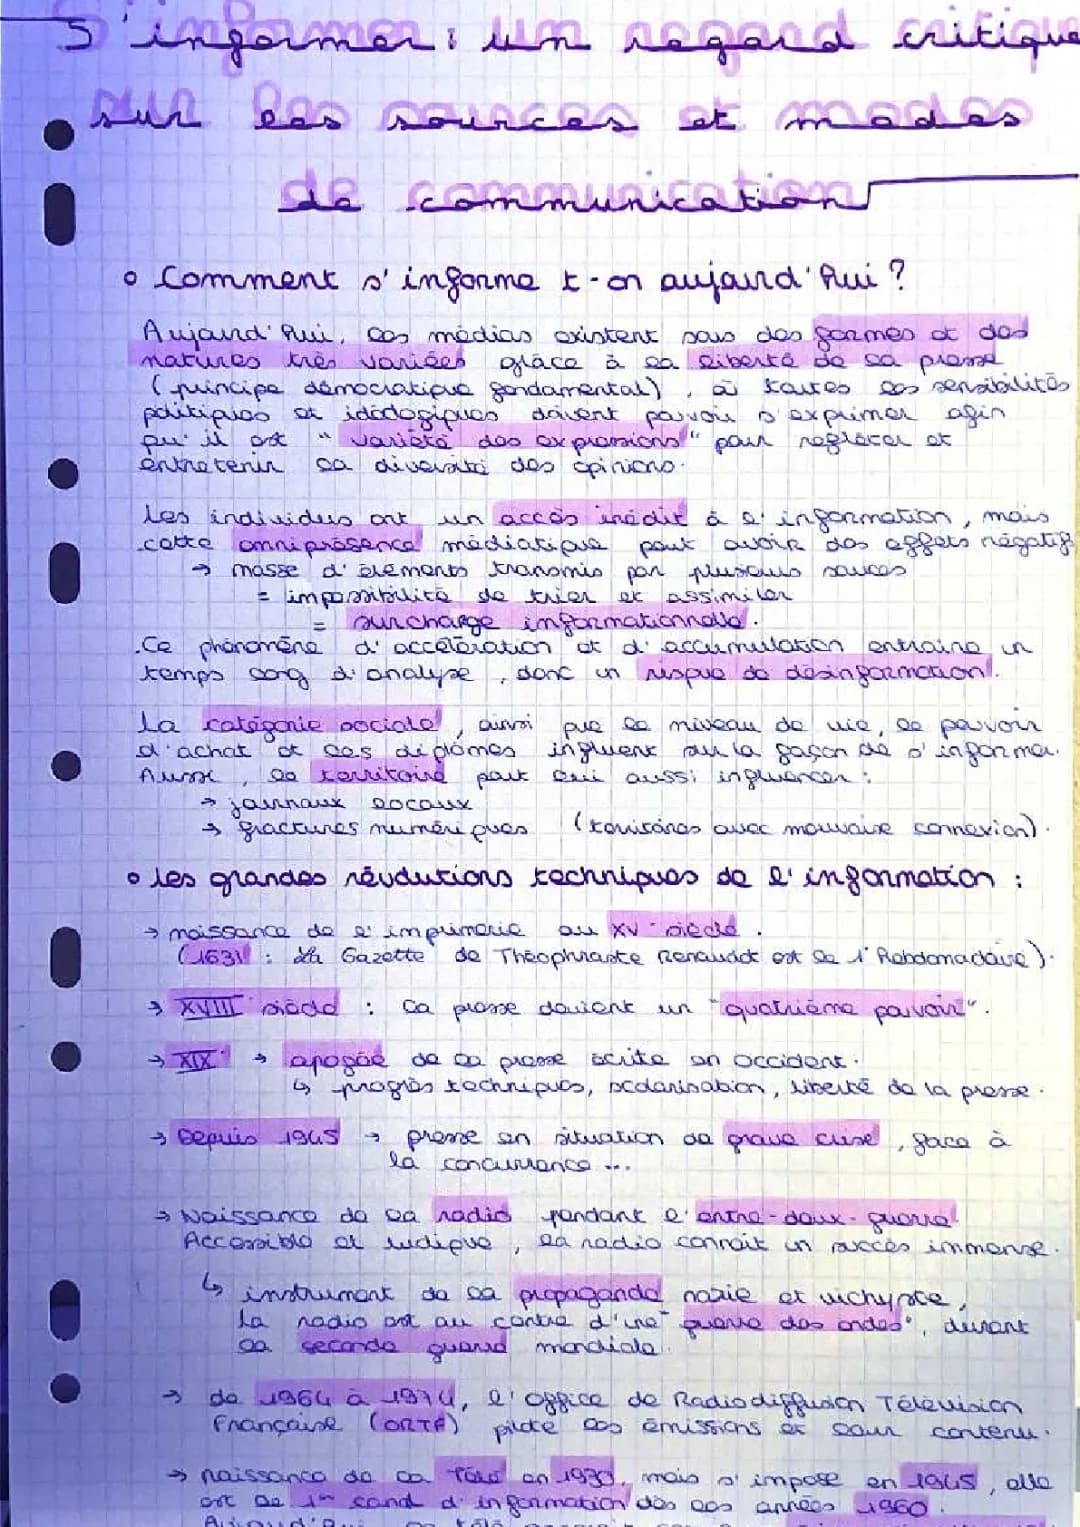 S'informer : un regard critique
sur les sources et modes
de communication
• Comment s'informe t-on aujourd'hui ?
Aujourd'hui, les médias existent sous des formes et des
natures très variées grâce à la liberté de la presse
(principe démocratique fondamental), où toutes les sensibilités
politiques et idéologiques doivent pouvoir s'exprimer afin
qu'il est "variété des expressions" pour refléter et
entretenir la diversité des opinions.
Les individus ont un accès inédit à l'information, mais
cette omniprésence médiatique peut avoir des effets négatifs
→ masse d'éléments transmis par plusieurs sources
= impossibilité de trier et assimiler
= surcharge informationnelle.
Ce phénomène d'accélération et d'accumulation entraine un
temps long d'analyse, donc un risque de désinformation.
La catégorie sociale, ainsi que le niveau de vie, le pouvoir
d'achat et les diplômes influent sur la façon de s'informer.
Aussi, le territoire peut lui aussi influencer :
→ journaux locaux
→ fractures numériques (territoires avec mauvaise connexion).
• les grandes révolutions techniques de l'information :
→ naissance de l'imprimerie au XVe siècle.
(1631 : La Gazette de Théophraste Renaudot est le 1er hebdomadaire).
→ XVIIIe siècle : la presse devient un "quatrième pouvoir".
→ XIXe → apogée de la presse écrite en Occident.
↳ progrès techniques, scolarisation, liberté de la presse.
→ Depuis 1945 → presse en situation de grave crise, face à
la concurrence ...
→ Naissance de la radio pendant l'entre-deux-guerre.
Accessible et ludique, la radio connait un succès immense.
↳ instrument de la propagande nazie et vichyste,
la radio est au centre d'une "guerre des ondes", durant
la seconde guerre mondiale.
→ de 1964 à 1974, l'Office de Radiodiffusion Télévision
Française (ORTF) pilote les émissions et leur contenu.
→ naissance de la Télé en 1930, mais s'impose en 1945, elle
est le 1er canal d'information dès les années 1960.